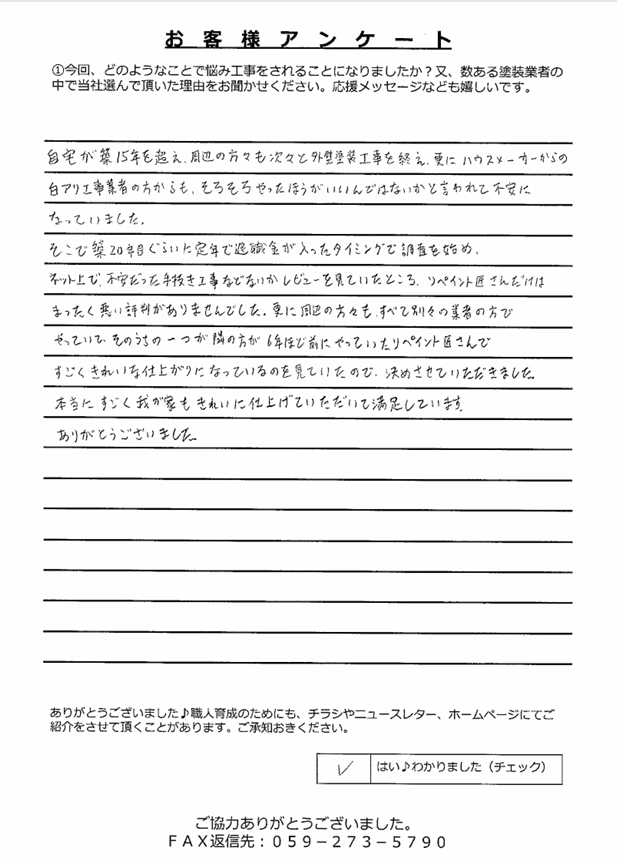 お客様アンケート
①今回、どのようなことで悩み工事をされることになりましたか？又、数ある塗装業者の
中で当社選んで頂いた理由をお聞かせください。応援メッセージなども嬉しいです。
自宅が築15年を超え、周辺の方々も次々と外壁塗装工事を終え、更にハウスメーカーからの
白アリ工事業者の方からも、そろそろやったほうがいいんではないかと言われて不安に
なっていました。
そこで築20年目ぐらいに定年で退職金が入ったタイミングで調査を始め、
ネット上で、不安だった手抜き工事などないかレビューを見ていたところ、リペイント匠さんだけは
まったく悪い評判がありませんでした。更に周辺の方々も、すべて別々の業者の方で
やっていて、そのうちの一つが隣の方が6年ほど前にやっていたリペイント匠さんで
すごくきれいな仕上がりになっているのを見ていたので、決めさせていただきました。
本当にすごく我が家もきれいに仕上げていただいて満足しています。
ありがとうございました。
ありがとうございました♪職人育成のためにも、チラシやニュースレター、ホームページにてご
紹介をさせて頂くことがあります。ご承知おきください。
✓ はい♪わかりました（チェック）
ご協力ありがとうございました。
ＦＡＸ返信先：０５９－２７３－５７９０